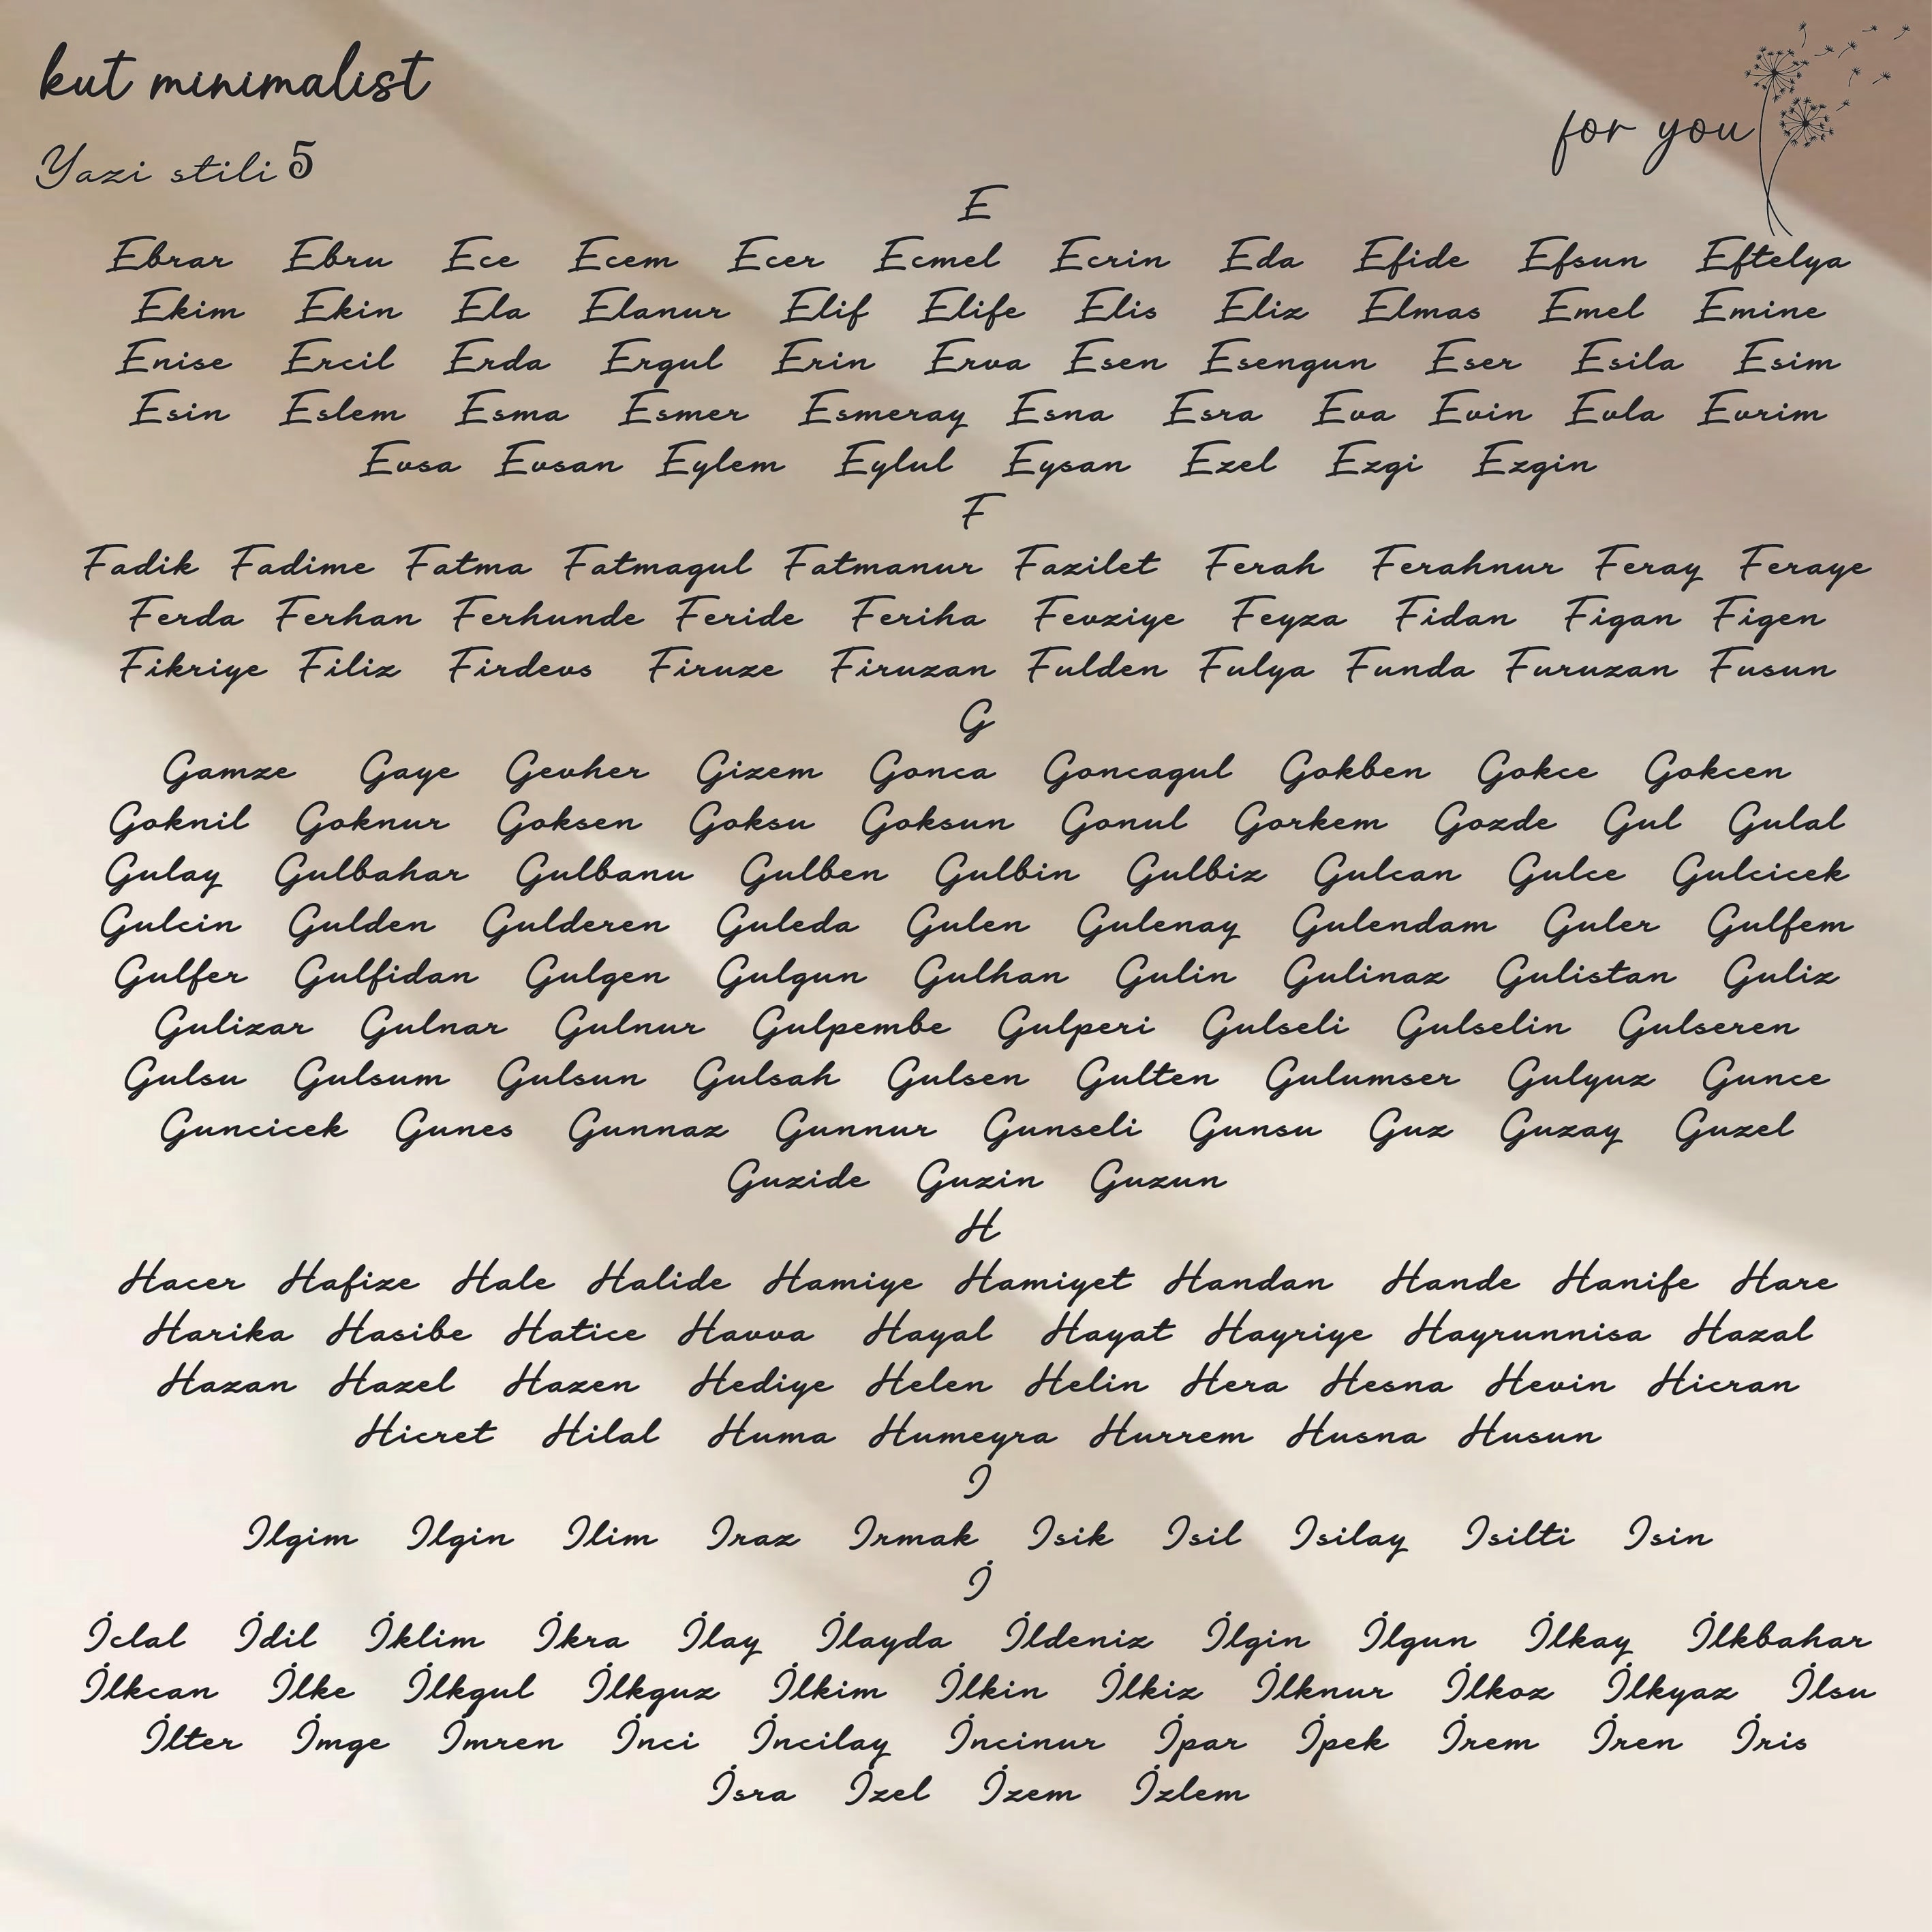 kut minimalist
for you
Yazi stili 5
E
Ebrar Ebru Ece Ecem Ecer Ecmel Ecrin Eda Efide Efsun Eftelya
Ekim Ekin Ela Elanur Elif Elife Elis Eliz Elmas Emel Emine
Enise Ercil Erda Ergul Erin Erva Esen Esengun Eser Esila Esim
Esin Eslem Esma Esmer Esmeray Esna Esra Eva Evin Evla Evrim
Evsa Evsan Eylem Eylul Eysan Ezel Ezgi Ezgin
F
Fadik Fadime Fatma Fatmagul Fatmanur Fazilet Ferah Ferahnur Feray Feraye
Ferda Ferhan Ferhunde Feride Feriha Fevziye Feyza Fidan Figan Figen
Fikriye Filiz Firdevs Firuze Firuzan Fulden Fulya Funda Furuzan Fusun
G
Gamze Gaye Gevher Gizem Gonca Goncagul Gokben Gokce Gokcen
Goknil Goknur Goksen Goksu Goksun Gonul Gorkem Gozde Gul Gulal
Gulay Gulbahar Gulbanu Gulben Gulbin Gulbiz Gulcan Gulce Gulcicek
Gulcin Gulden Gulderen Guleda Gulen Gulenay Gulendam Guler Gulfem
Gulfer Gulfidan Gulgen Gulgun Gulhan Gulin Gulinaz Gulistan Guliz
Gulizar Gulnar Gulnur Gulpembe Gulperi Gulseli Gulselin Gulseren
Gulsu Gulsum Gulsun Gulsah Gulsen Gulten Gulumser Gulyuz Gunce
Guncicek Gunes Gunnaz Gunnur Gunseli Gunsu Guz Guzay Guzel
Guzide Guzin Guzun
H
Hacer Hafize Hale Halide Hamiye Hamiyet Handan Hande Hanife Hare
Harika Hasibe Hatice Havva Hayal Hayat Hayriye Hayrunnisa Hazal
Hazan Hazel Hazen Hediye Helen Helin Hera Hesna Hevin Hicran
Hicret Hilal Huma Humeyra Hurrem Husna Husun
I
Ilgim Ilgin Ilim Iraz Irmak Isik Isil Isilay Isilti Isin
İ
İclal İdil İklim İkra İlay İlayda İldeniz İlgin İlgun İlkay İlkbahar
İlkcan İlke İlkgul İlkguz İlkim İlkin İlkiz İlknur İlkoz İlkyaz İlsu
İlter İmge İmren İnci İncilay İncinur İpar İpek İrem İren İris
İsra İzel İzem İzlem